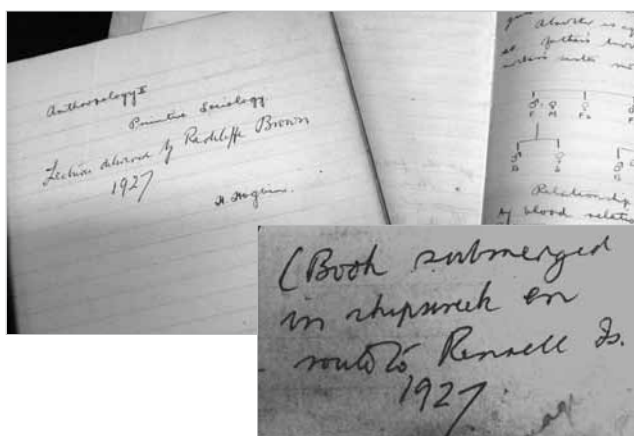 Anthropology I
Primitive Sociology.
Lectures delivered by Radcliffe Brown
1927
H. Hogbin.
as father's
mother's sister
♂ ♀ ♀
F M
♂ ♀ ♂
Relationship
by blood relatio
(Book submerged
in shipwreck en
route to Rennell Is.
1927